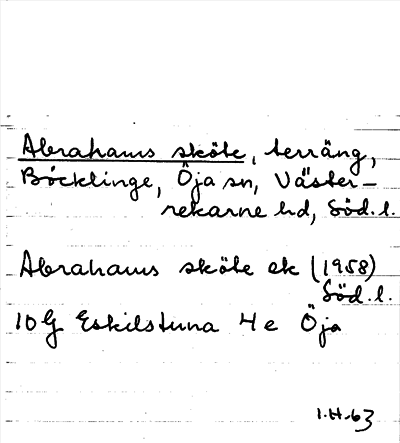 Abrahams sköte, terräng,
Böcklinge, Öja sn, Väster-
rekarne hd, Söd.l.
Abrahams sköte ek (1958)
Söd.l.
10G Eskilstuna 4e Öja
1.H.63